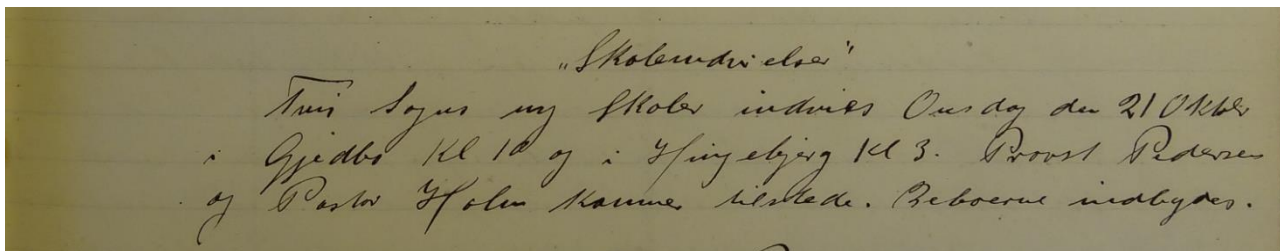 „Skoleindvielser"
Tvis Sogns ny Skoler indvies Onsdag den 21 Oktbr
i Gjedbo Kl 10 og i Hingebjerg Kl 3. Provst Pedersen
og Pastor Holm kommer tilstede. Beboerne indbydes.